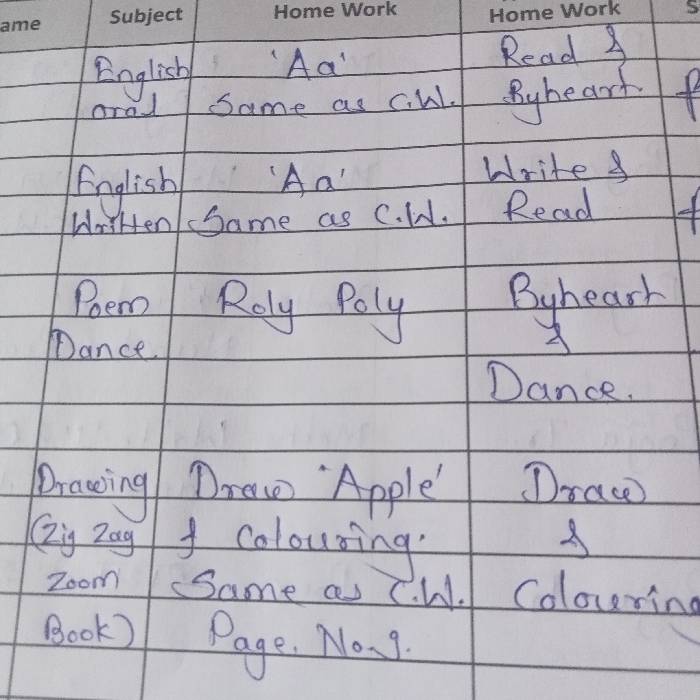 ame Subject Home Work Home Work S
English 'Aa' Read &
oral Same as C.W. Byheart.
English 'Aa' Write &
Written Same as C.W. Read
Poem Roly Poly Byheart
Dance. &
Dance.
Drawing Draw 'Apple' Draw
(Zig Zag & Colouring. &
Zoom Same as C.W. Colouring
Book) Page. No. 9.